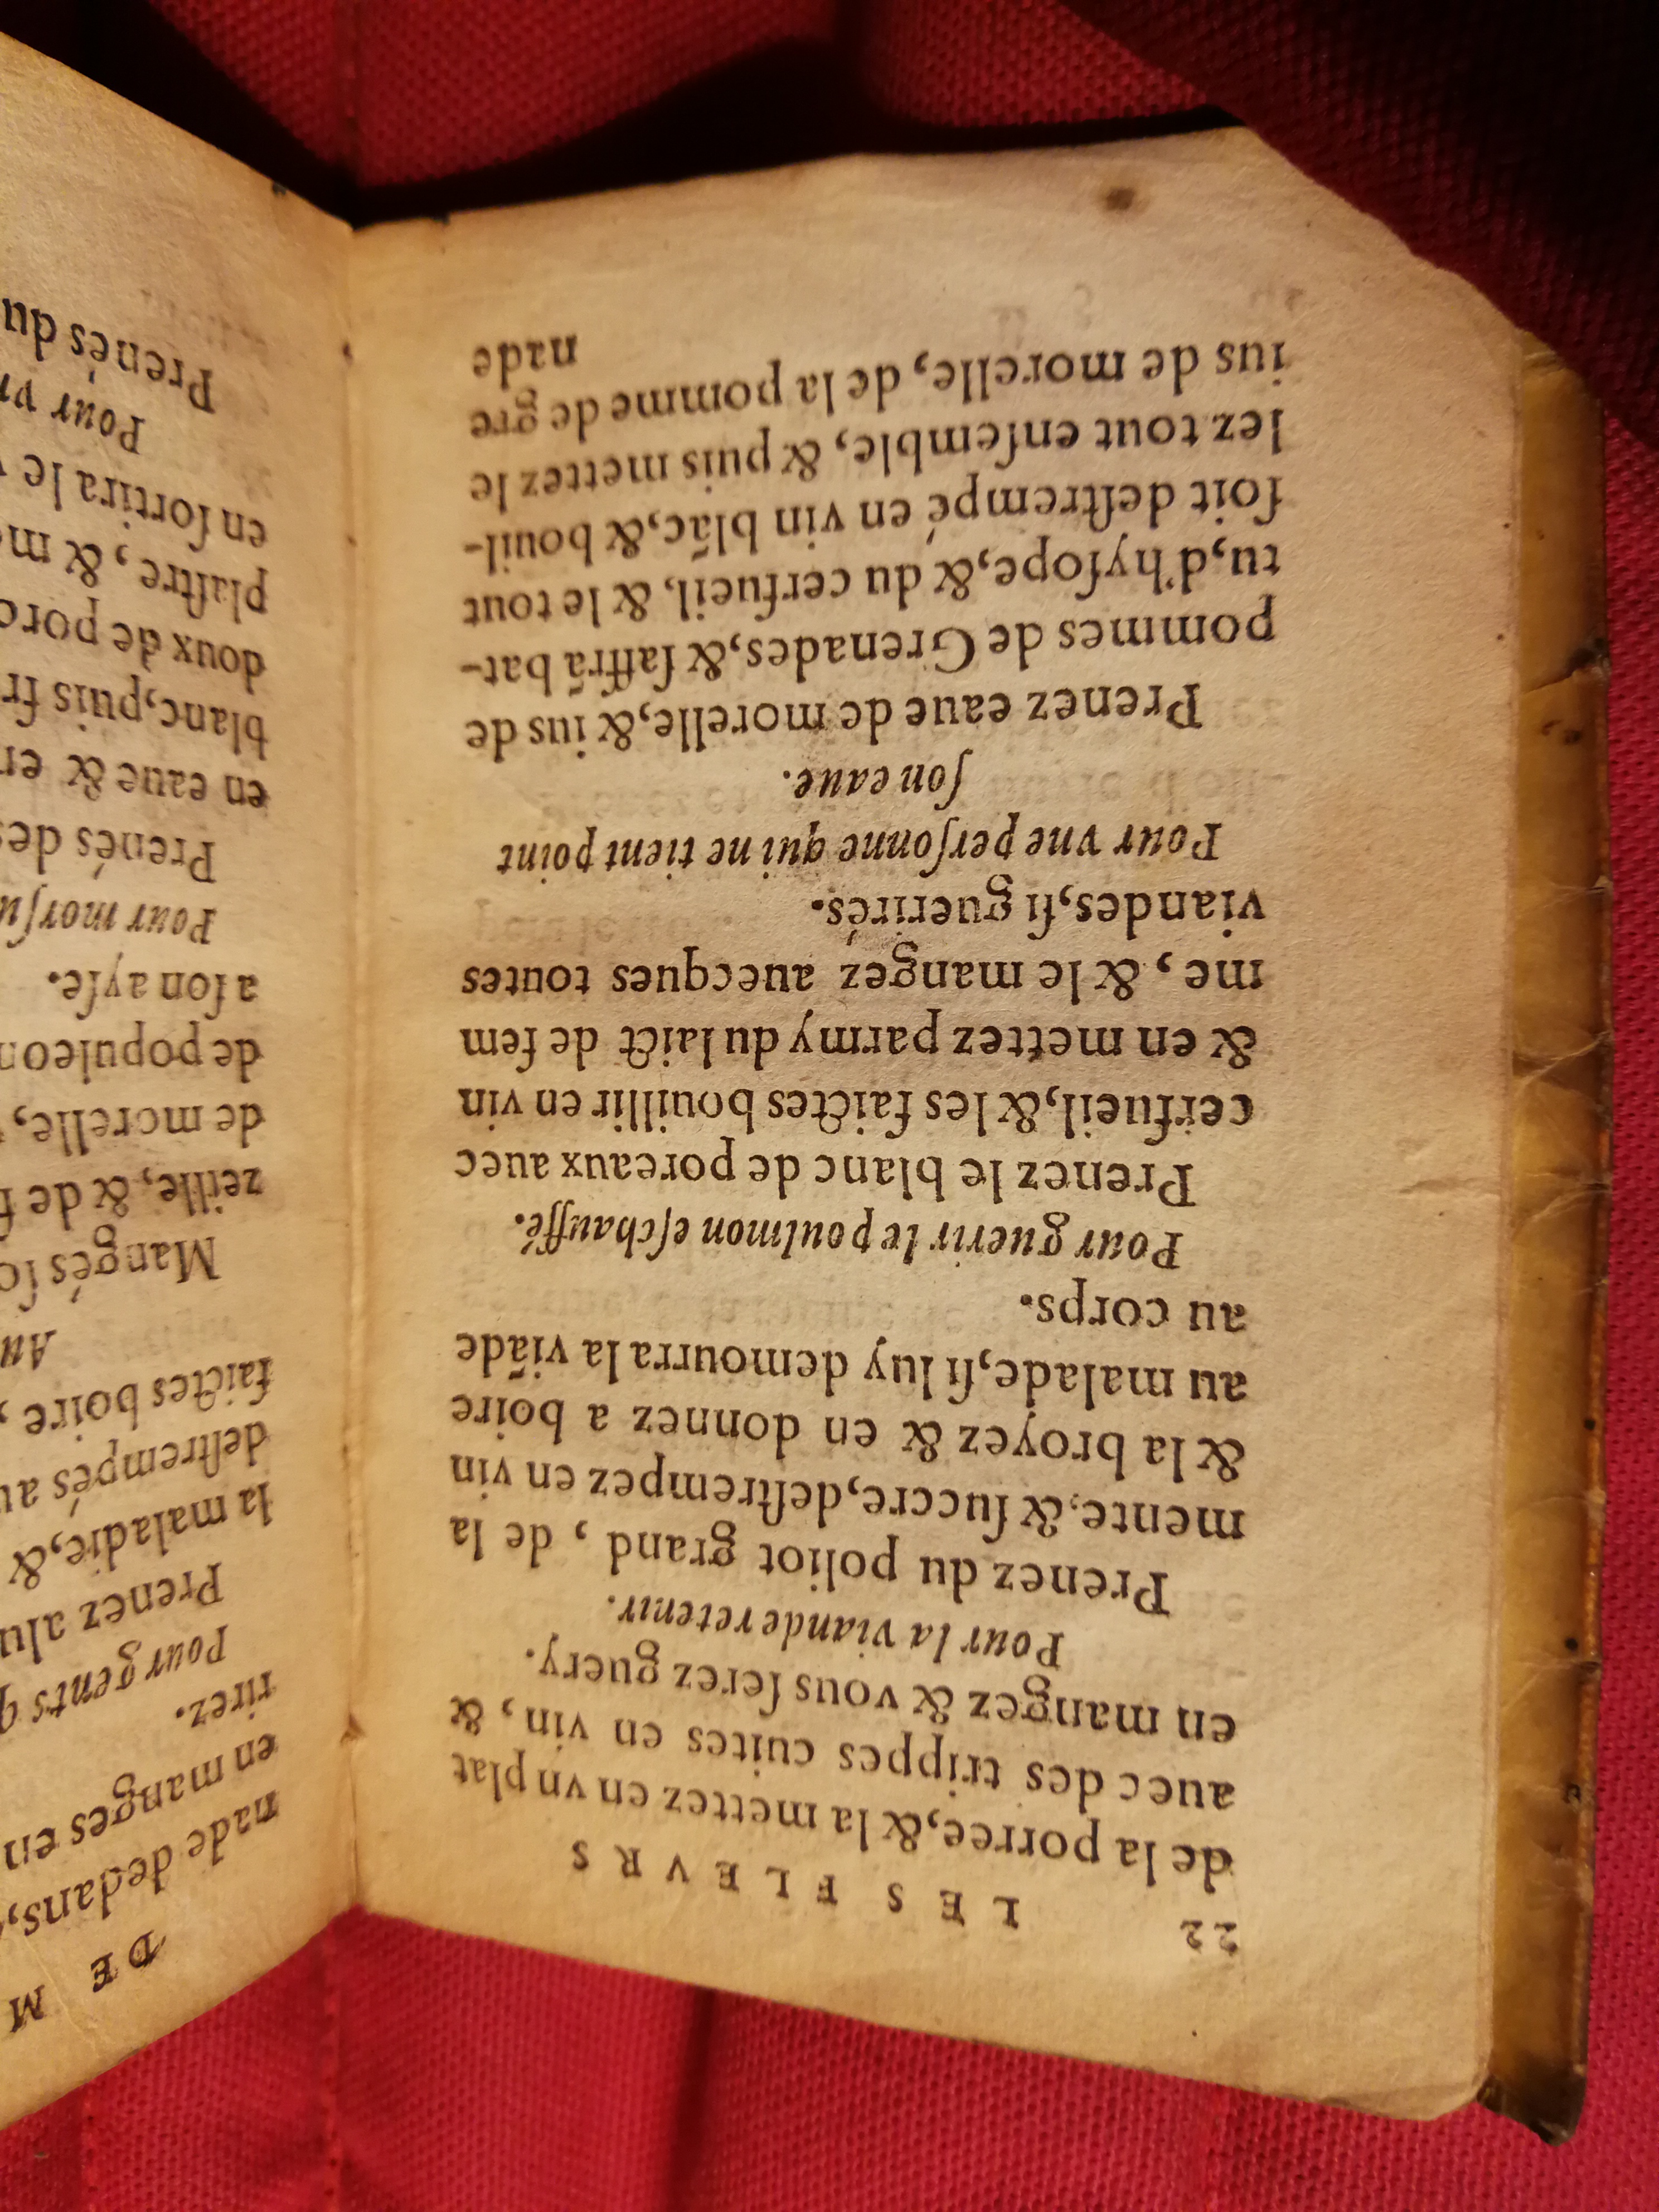 22
LES FLEVRS
de la porree,&la mettez en vn plat
auec des trippes cuites en vin, &
en mangez & vous ſerez guery.
Pour la viande retenir.
Prenez du poliot grand, de la
mente,& ſuccre,deſtrempez en vin
& la broyez & en donnez a boire
au malade,ſi luy demourra la viãde
au corps.
Pour guerir le poulmon eſchauffé.
Prenez le blanc de poreaux auec
cerfueil,& les faictes bouillir en vin
& en mettez parmy du laict de fem
me, & le mangez auecques toutes
viandes,ſi guerirés.
Pour vne perſonne qui ne tient point
ſon eaue.
Prenez eaue de morelle,& ius de
pommes de Grenades,& ſaffrã bat-
tu,d'hyſope,& du cerfueil, & le tout
ſoit deſtrempé en vin blãc,& bouil-
lez tout enſemble, & puis mettez le
ius de morelle, de la pomme de gre
nade
DE M
nade dedans,
en manges en
rirez.
Pour gents q
Prenez alu
la maladie,&
deſtrempés au
faictes boire,
Au
Mangés ſo
zeille, & de
de morelle,
de populeon
a ſon ayſe.
Pour morſu
Prenés des
en eaue & en
blanc,puis fr
doux de porc
plaſtre, & m
en ſortira le
Pour vn
Prenés du